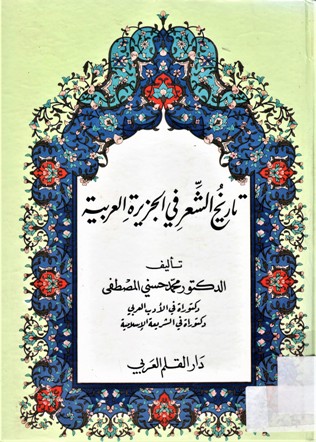 تاريخ الشِّعر في الجزيرة العربية
تأليف
الدكتور محمد حسني المصطفى
دكتوراة في الأدب العربي
دكتوراة في الشريعة الإسلامية
دار القلم العربي